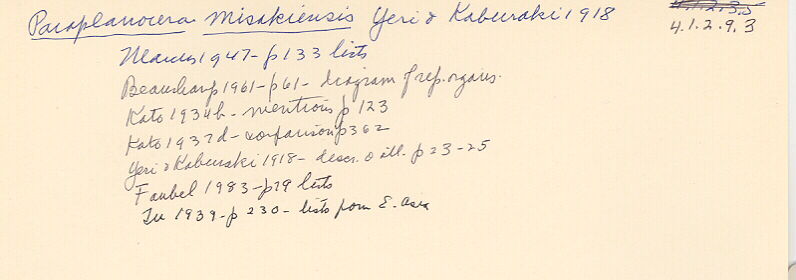 Paraplanocera misakiensis Yeri & Kaburaki 1918
4.1.2.3.5
4.1.2.9.3
Marcus 1947 - p 133 lists
Beauchamp 1961 - p 61 - diagram of rep. organs.
Kato 1934b - mentions p 123
Kato 1937d - comparison p 362
Yeri & Kaburaki 1918 - descr. & ill. p 23-25
Faubel 1983 - p 79 lists
Tu 1939 - p 230 - lists from E. Asia